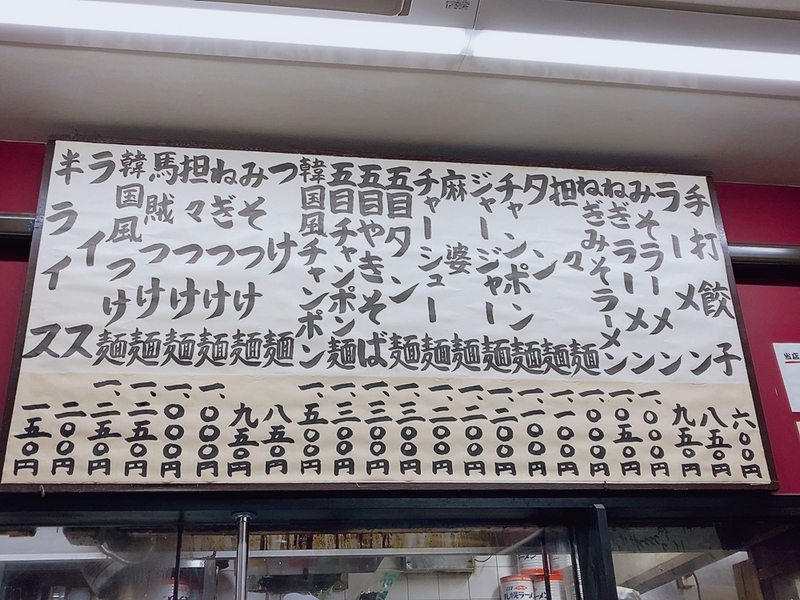 手打餃子 六〇〇円
ラーメン 八五〇円
みそラーメン 九五〇円
ねぎラーメン 一、〇〇〇円
ねぎみそラーメン 一、〇五〇円
担々麺 一、〇〇〇円
タン麺 一、一〇〇円
チャンポン麺 一、一〇〇円
ジャージャー麺 一、二〇〇円
麻婆麺 一、二〇〇円
チャーシュー麺 一、二〇〇円
五目タン麺 一、三〇〇円
五目やきそば 一、三〇〇円
五目チャンポン麺 一、三〇〇円
韓国風チャンポン 一、五〇〇円
つけ麺 八五〇円
みそつけ麺 九五〇円
ねぎつけ麺 一、〇〇〇円
担々つけ麺 一、〇〇〇円
馬賊つけ麺 一、二五〇円
韓国風つけ麺 一、二五〇円
ライス 二〇〇円
半ライス 一五〇円
当店